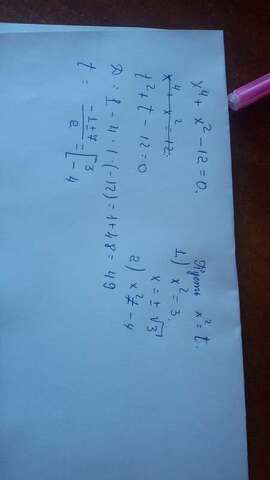 x⁴ + x² - 12 = 0.
x⁴ + x² = 12.
t² + t - 12 = 0
D = 1 - 4 · 1 · (-12) = 1 + 48 = 49
t = (-1 ± 7) / 2 = [ 3 - 4
x² = t.
1) x² = 3.
x = ± √3
2) x² ≠ - 4